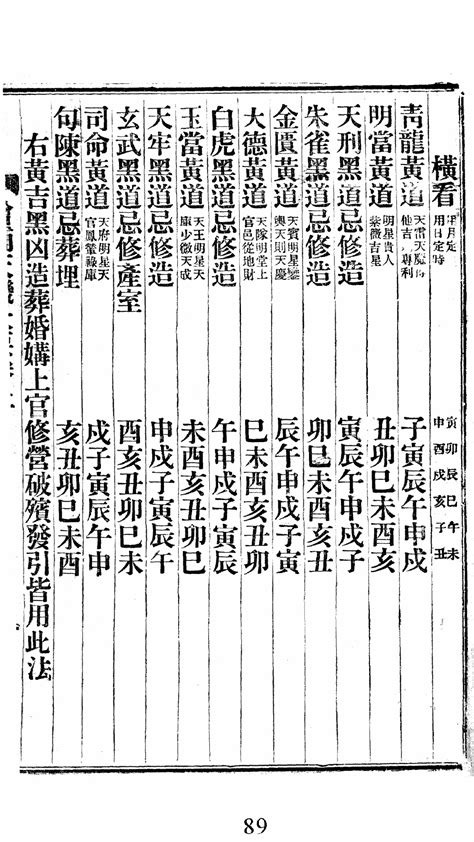 橫看 月定 用日定時 寅卯辰巳午未 申酉戌亥子丑
靑龍黃道 天雷天 他吉專利 子寅辰午申戌
明當黃道 明星貴人 紫微吉星 丑卯巳未酉亥
天刑黑道忌修造 寅辰午申戌子
朱雀黑道忌修造 卯巳未酉亥丑
金匱黃道 天賓明星 天則天慶 辰午申戌子寅
大德黃道 天隊明堂上 官邑從地財 巳未酉亥丑卯
白虎黑道忌修造 午申戌子寅辰
玉當黃道 天王明星天 庫少微天成 未酉亥丑卯巳
天牢黑道忌修造 申戌子寅辰午
玄武黑道忌修產室 酉亥丑卯巳未
司命黃道 天府明星天 官鳳輦祿庫 戌子寅辰午申
句陳黑道忌葬埋 亥丑卯巳未酉
右黃吉黑凶造葬婚媾上官修營破殯發引皆用此法
89